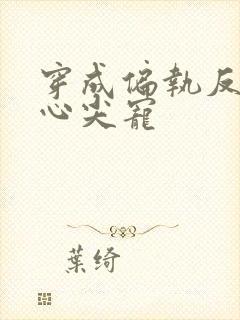 穿成偏執反
心尖寵
葉綺